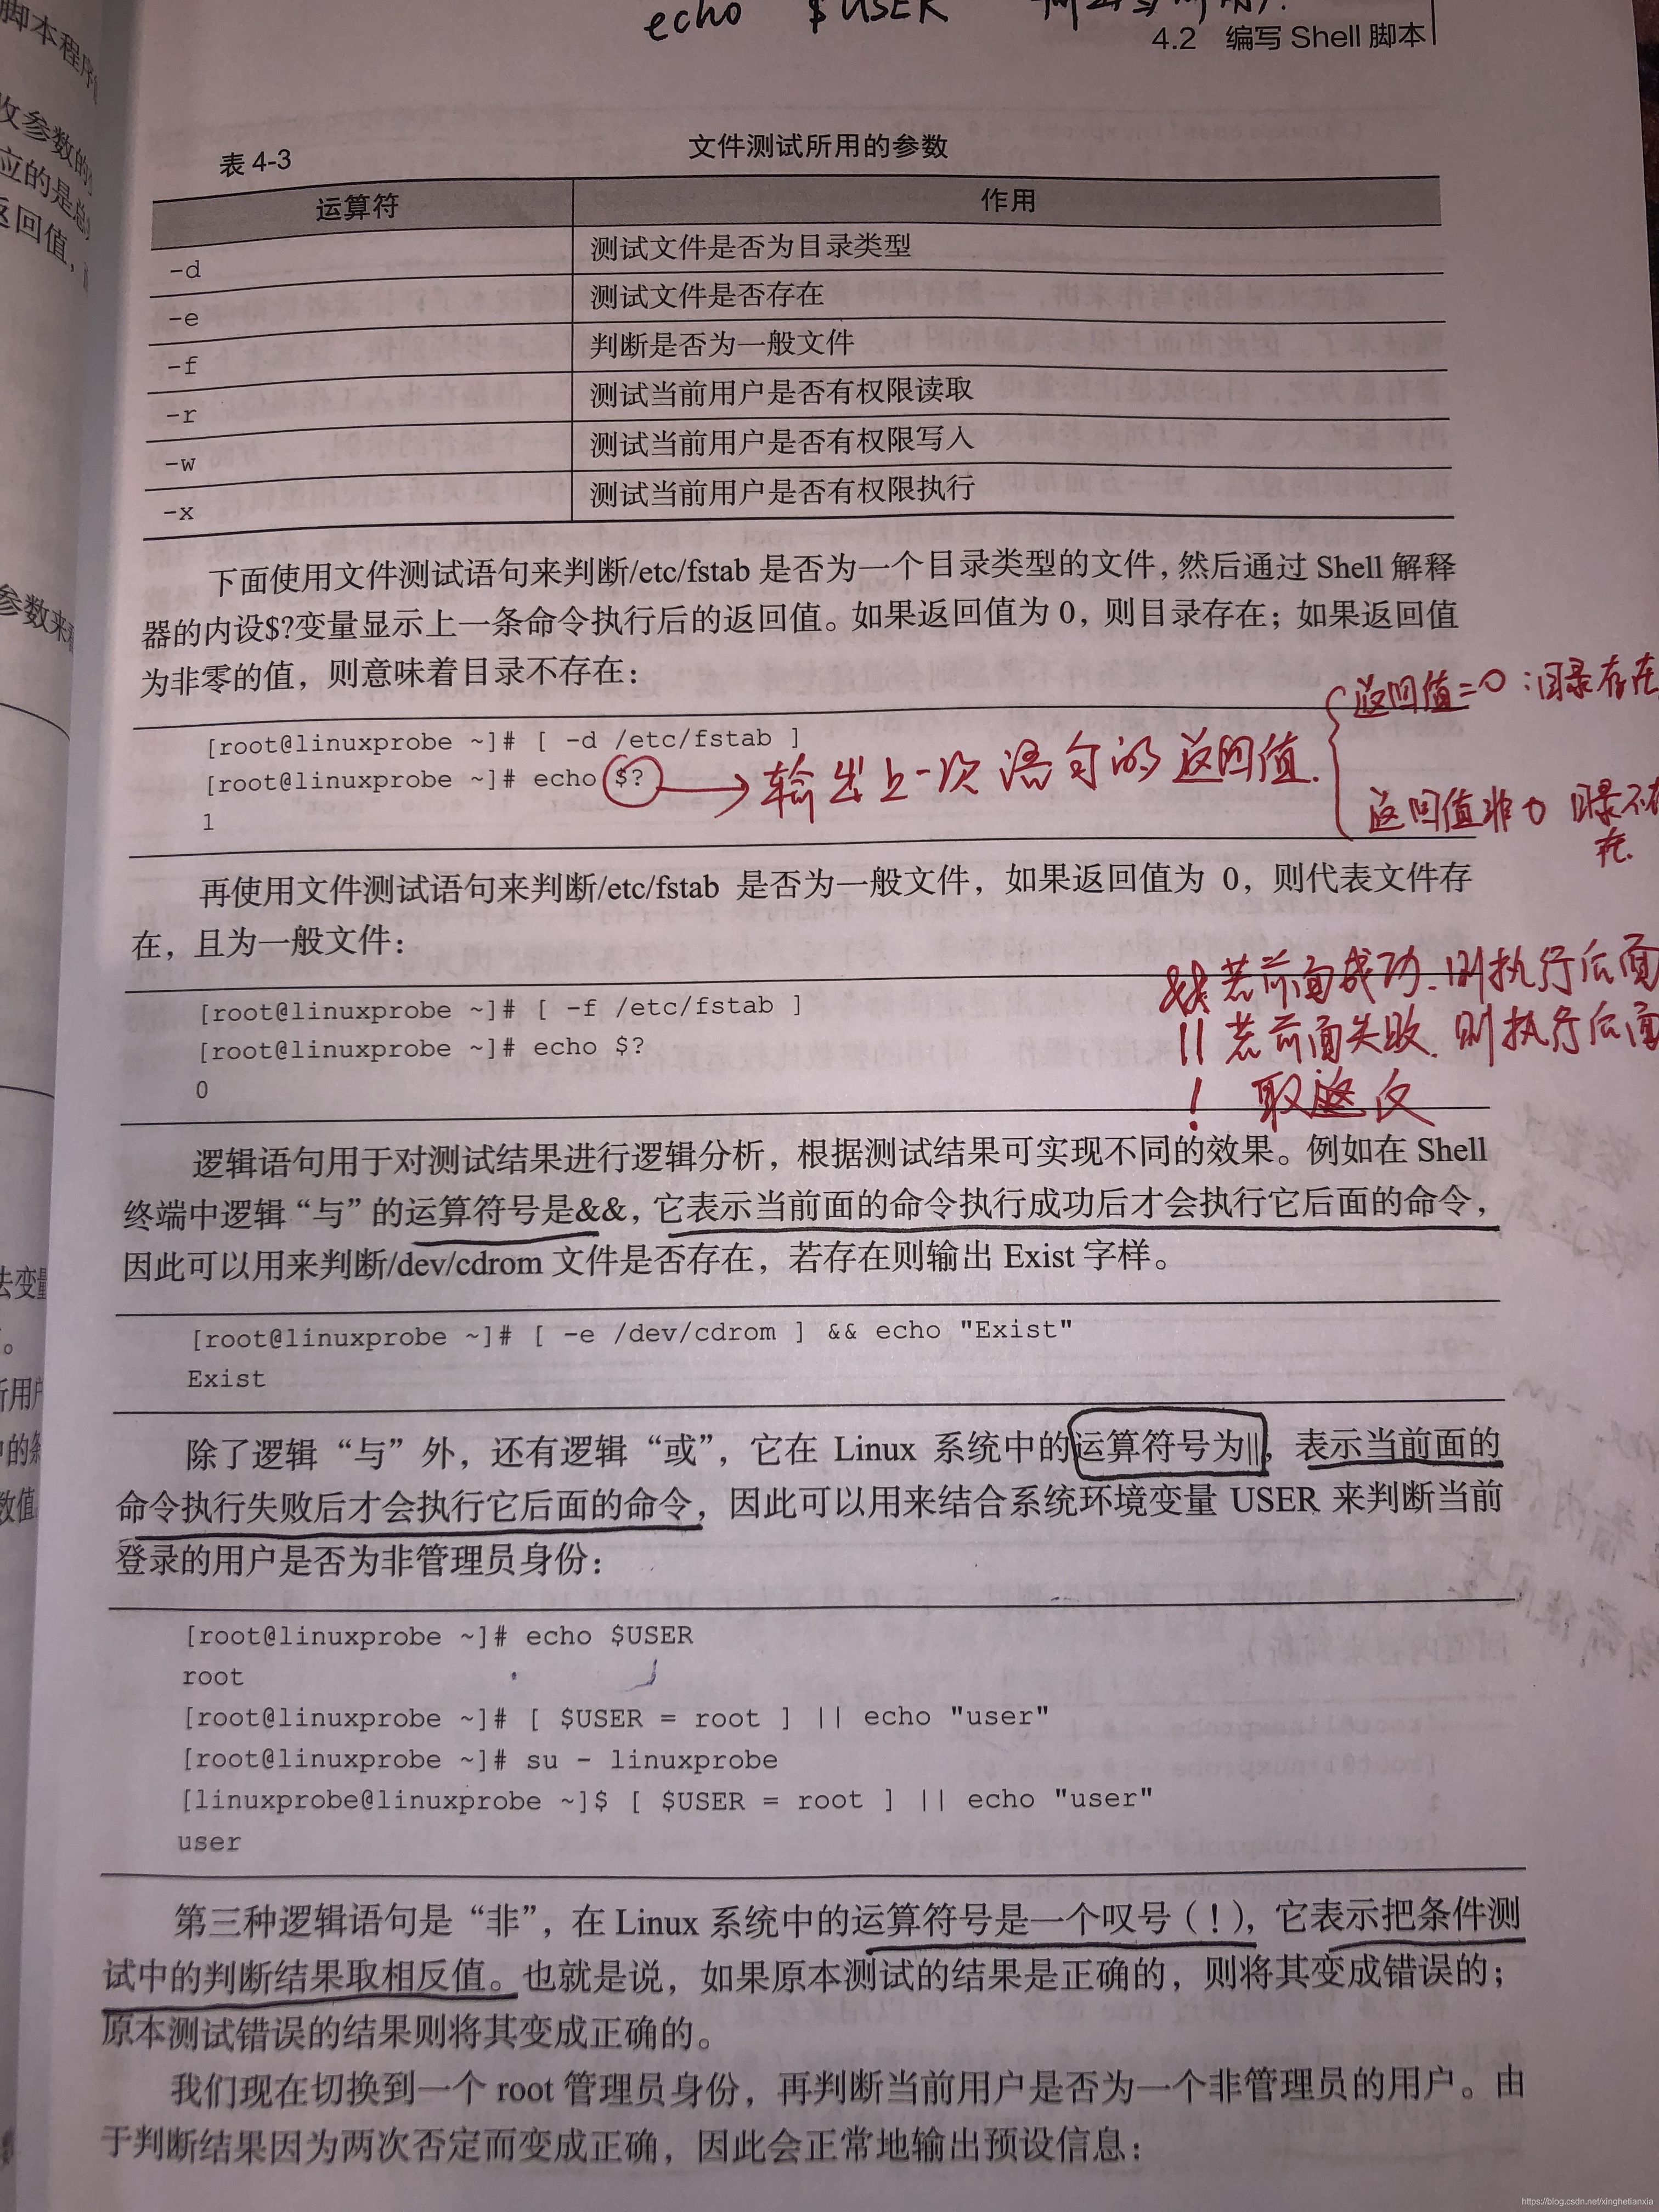 echo $USER
4.2 编写 Shell 脚本
脚本程序
收参数的
应的是总
返回值，
参数来
去变量
。
所用户
中的条
数值
表 4-3
文件测试所用的参数
运算符 作用
-d 测试文件是否为目录类型
-e 测试文件是否存在
-f 判断是否为一般文件
-r 测试当前用户是否有权限读取
-w 测试当前用户是否有权限写入
-x 测试当前用户是否有权限执行
下面使用文件测试语句来判断/etc/fstab 是否为一个目录类型的文件，然后通过 Shell 解释
器的内设$?变量显示上一条命令执行后的返回值。如果返回值为 0，则目录存在；如果返回值
为非零的值，则意味着目录不存在：
返回值=0：目录存在
[root@linuxprobe ~]# [ -d /etc/fstab ]
[root@linuxprobe ~]# echo $?
输出上一次语句的返回值.
1
返回值非0 目录不存
在.
再使用文件测试语句来判断/etc/fstab 是否为一般文件，如果返回值为 0，则代表文件存
在，且为一般文件：
&& 若前面成功.则执行后面
[root@linuxprobe ~]# [ -f /etc/fstab ]
|| 若前面失败.则执行后面
[root@linuxprobe ~]# echo $?
0
! 取 反
逻辑语句用于对测试结果进行逻辑分析，根据测试结果可实现不同的效果。例如在 Shell
终端中逻辑“与”的运算符号是&&，它表示当前面的命令执行成功后才会执行它后面的命令，
因此可以用来判断/dev/cdrom 文件是否存在，若存在则输出 Exist 字样。
[root@linuxprobe ~]# [ -e /dev/cdrom ] && echo "Exist"
Exist
除了逻辑“与”外，还有逻辑“或”，它在 Linux 系统中的运算符号为||，表示当前面的
命令执行失败后才会执行它后面的命令，因此可以用来结合系统环境变量 USER 来判断当前
登录的用户是否为非管理员身份：
[root@linuxprobe ~]# echo $USER
root
[root@linuxprobe ~]# [ $USER = root ] || echo "user"
[root@linuxprobe ~]# su - linuxprobe
[linuxprobe@linuxprobe ~]$ [ $USER = root ] || echo "user"
user
第三种逻辑语句是“非”，在 Linux 系统中的运算符号是一个叹号（!），它表示把条件测
试中的判断结果取相反值。也就是说，如果原本测试的结果是正确的，则将其变成错误的；
原本测试错误的结果则将其变成正确的。
我们现在切换到一个 root 管理员身份，再判断当前用户是否为一个非管理员的用户。由
于判断结果因为两次否定而变成正确，因此会正常地输出预设信息：
https://blog.csdn.net/xinghetianxia